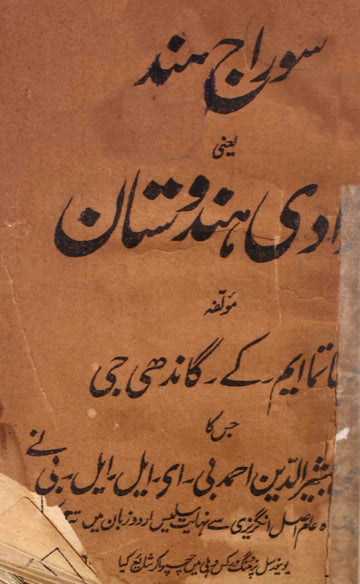 سوراج ہند
یعنی
ادی ہندوستان
مؤلفہ
اتما ایم۔ کے۔ گاندھی جی
جس کا
بشیرالدین احمد بی۔ ای۔ ایل۔ ایل۔ بی نے
عام اصل انگریزی سے نہایت سلیس اردو زبان میں
یونیورسل پرنٹنگ ورکس دہلی میں چھپوا کر شائع کیا